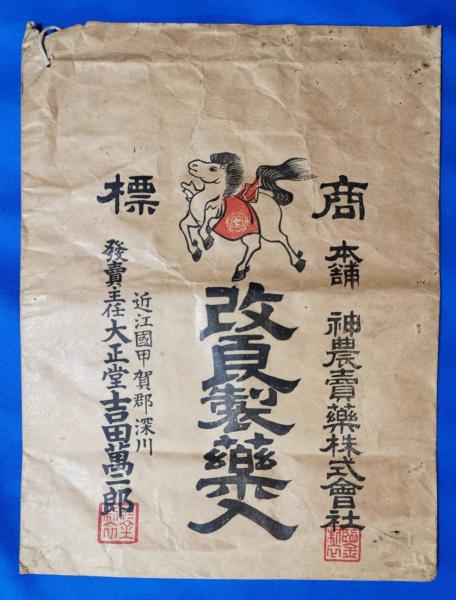 商標
本舗 神農賣藥株式會社
改良製藥入
近江國甲賀郡深川
發賣主任 大正堂吉田萬二郎